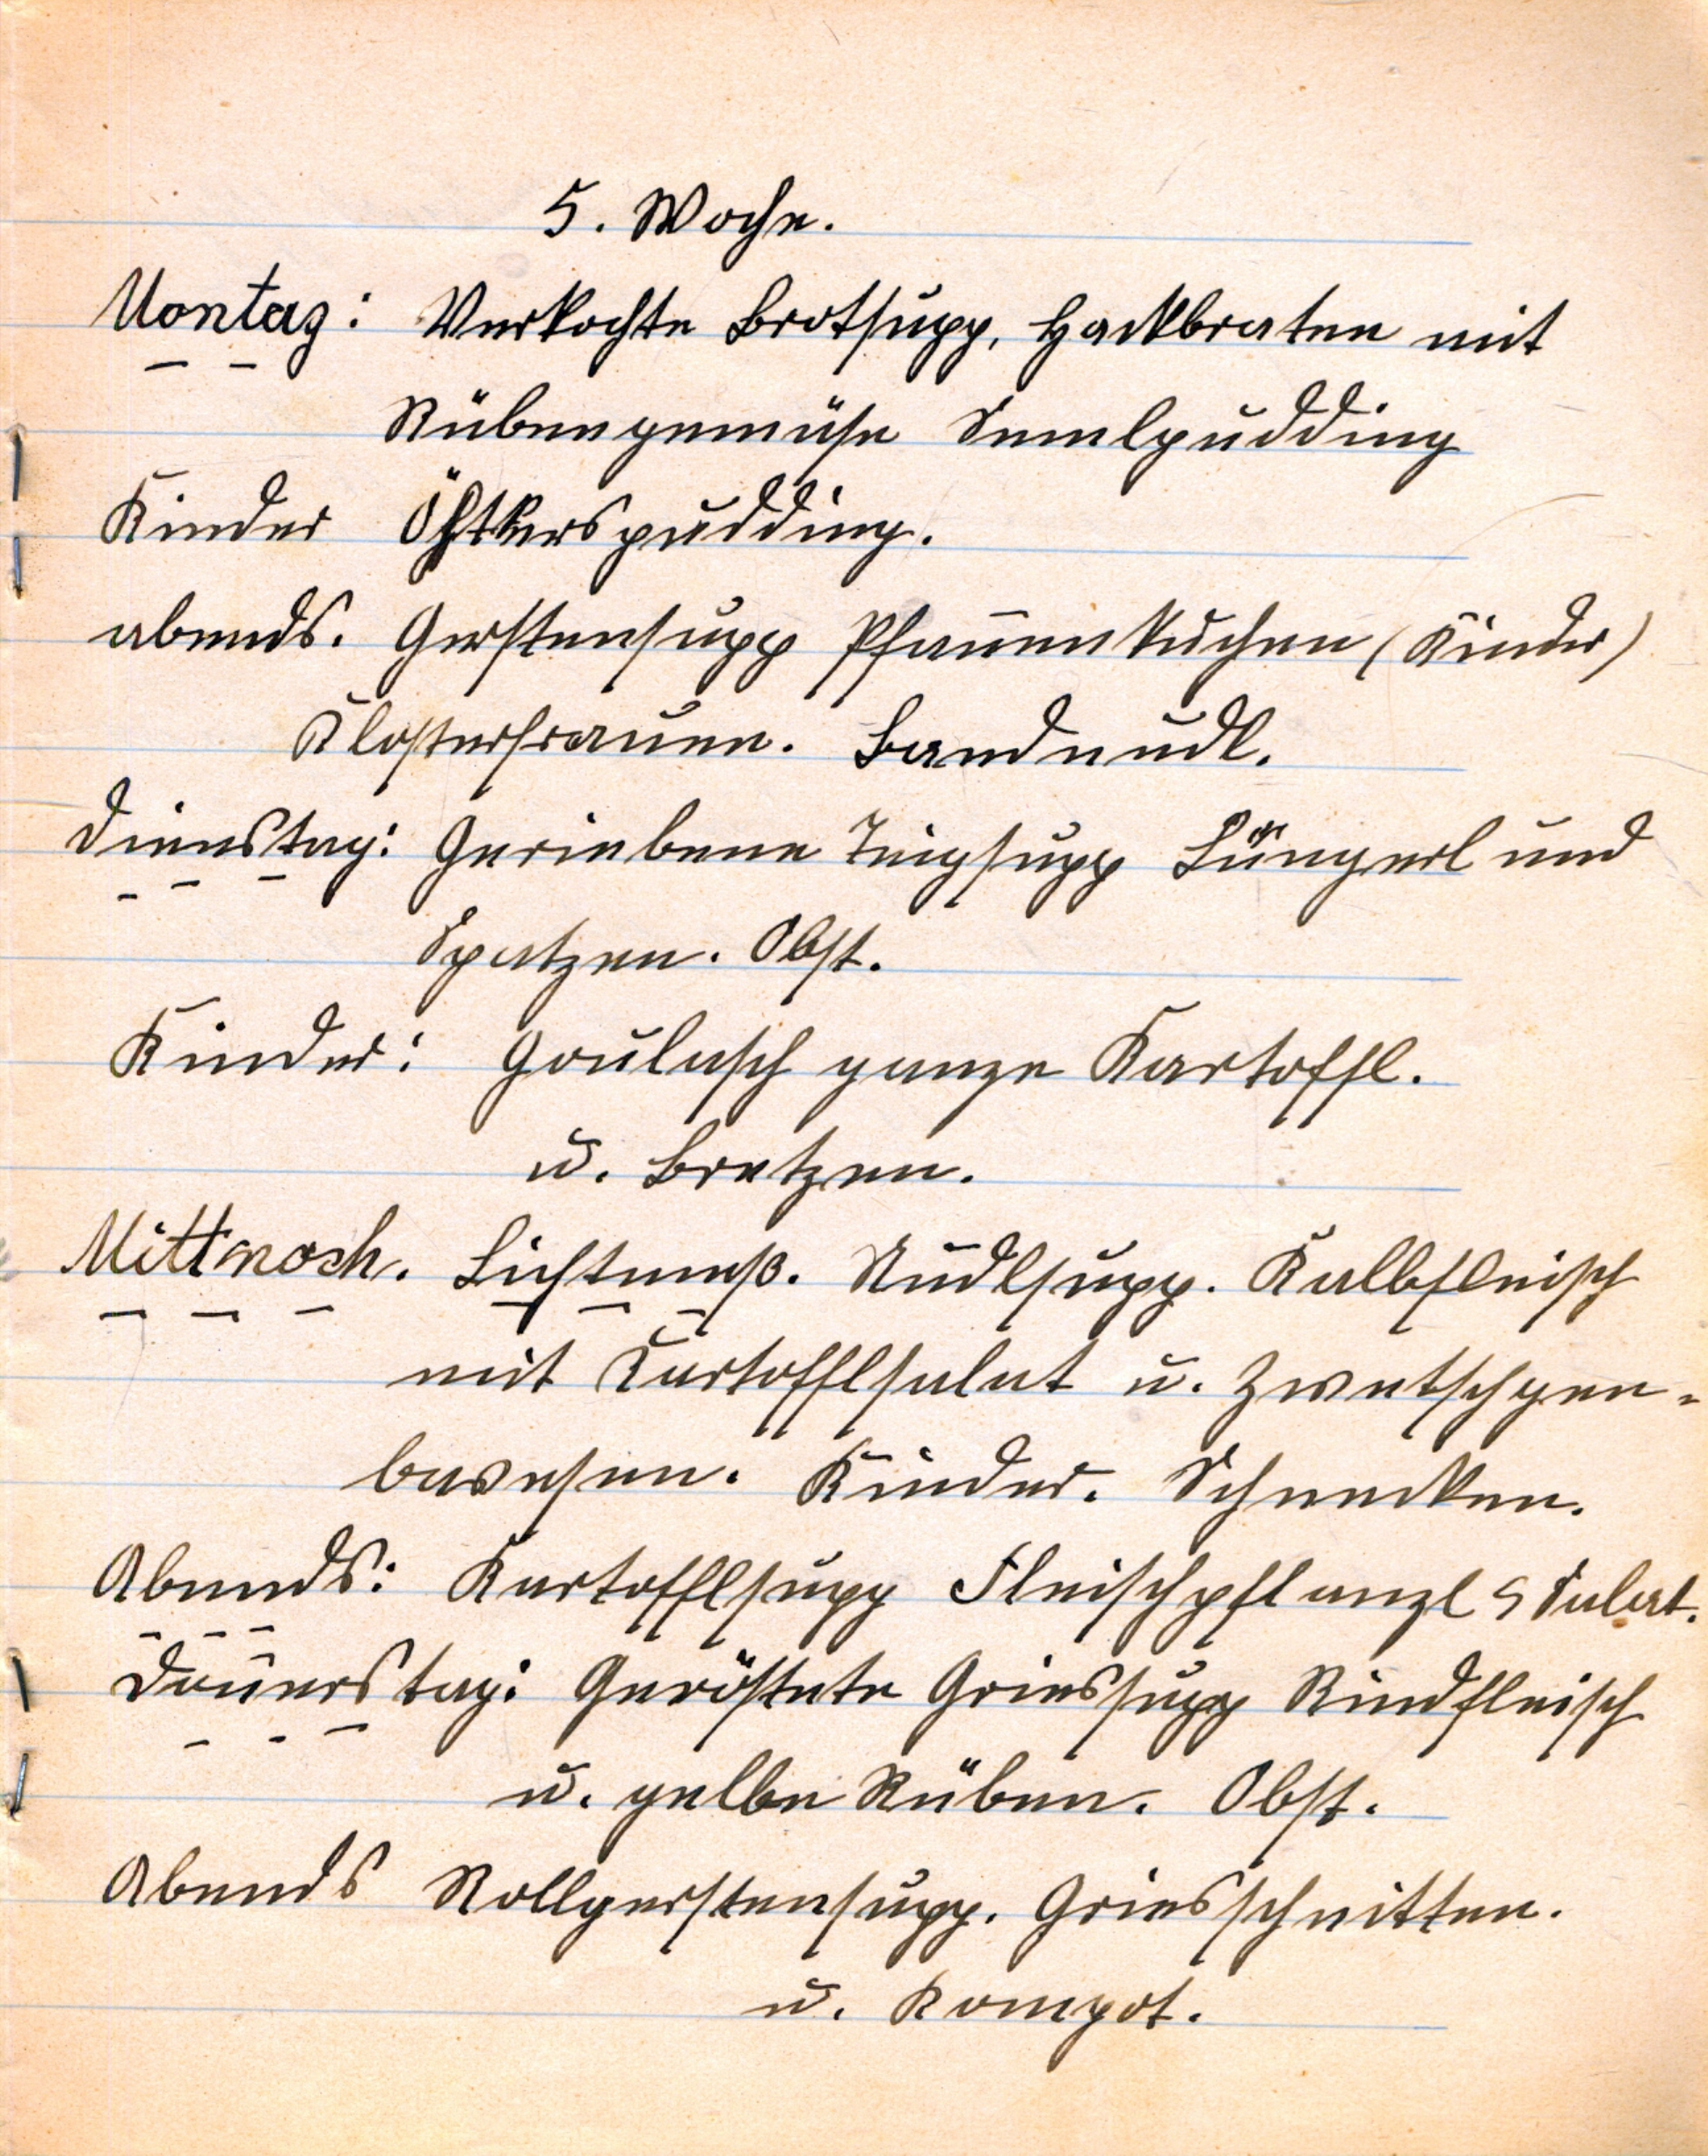 5. Woche.
Montag: Verkochte Brotsupp, Hackbraten mit
Rübengemüse Semelpudding
Kinder Öhtkerspudding.
abends. Gerstensupp Pfan̄enkuchen (Kinder)
Klosterfrauen. Bandnudl.
Dienstag: Geriebene Teigsupp Lüngerl und
Spatzen. Obst.
Kinder: Goulasch ganze Kartoffl.
u. Bretzen.
Mittwoch. Lichtmeß. Nudlsupp. Kalbfleisch
mit Kartofflsalat u. Zwetschgen-
bavesen. Kinder. Schnecken.
Abends: Kartofflsupp Fleischpflanzl Salat.
Don̄erstag: Geröstete Griessupp Rindfleisch
u. gelbe Rüben. Obst.
Abends Rollgerstensupp. Griesschnitten.
u. Kompot.